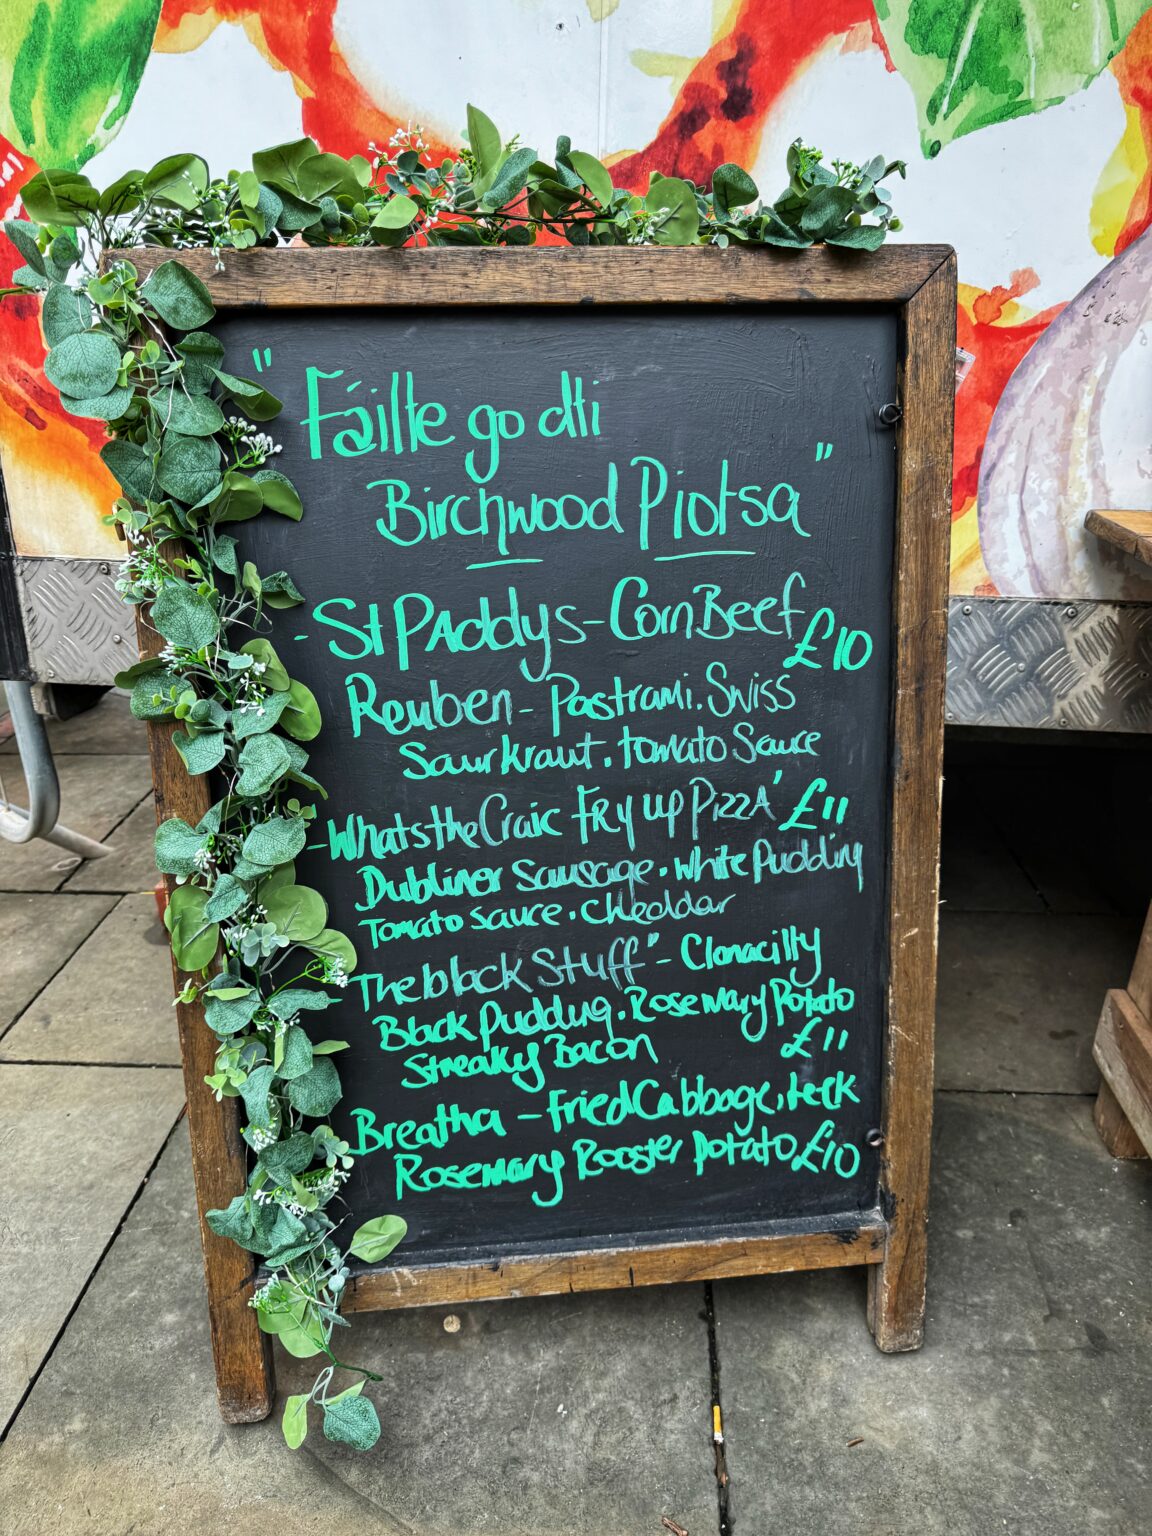 "Fáilte go dtí
Birchwood Piotsa"
- St PAddys - Corn Beef £10
Reuben - Pastrami. Swiss
Saurkraut. tomato Sauce
- Whats the Craic Fry up PizzA' £11
Dubliner Sausage. white Pudding
Tomato sauce. cheddar
- The black Stuff" - Clonacilty
Black pudding. Rosemary Potato
Streaky Bacon £11
Breatha - fried Cabbage, Leek
Rosemary Rooster potato £10